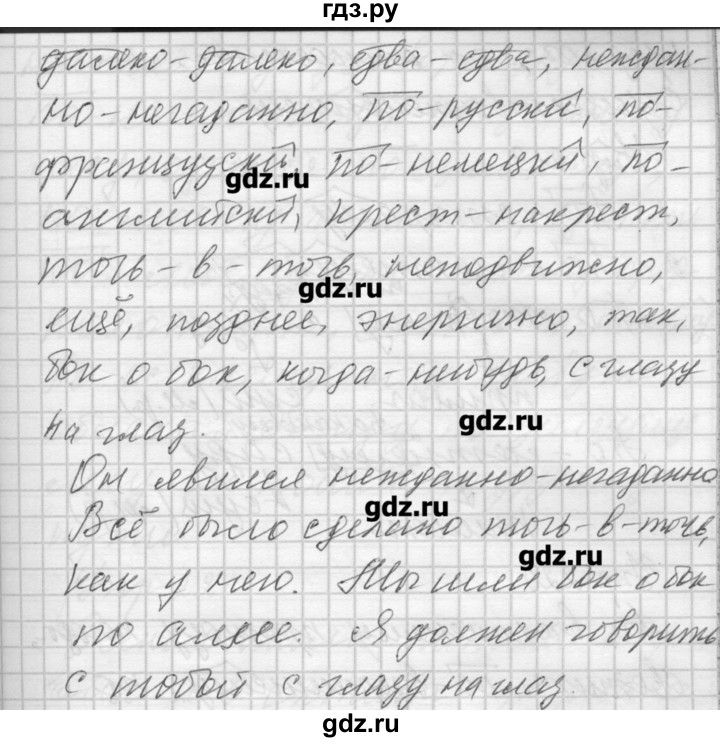 гдз.ру
далеко-далеко, едва-едва, неждан-
но-негаданно, по-русски, по-
французски, по-немецки, по-
gdz.ru
английски, крест-накрест,
точь-в-точь, неподвижно,
gdz.ru
ещё, позднее, энергично, так,
бок о бок, когда-нибудь, с глазу
на глаз.
gdz.ru
Он явился нежданно-негаданно
Всё было сделано точь-в-точь,
gdz.ru
как у него. Мы шли бок о бок
gdz.ru
по аллее. Я должен говорить
с тобой с глазу на глаз.
gdz.ru